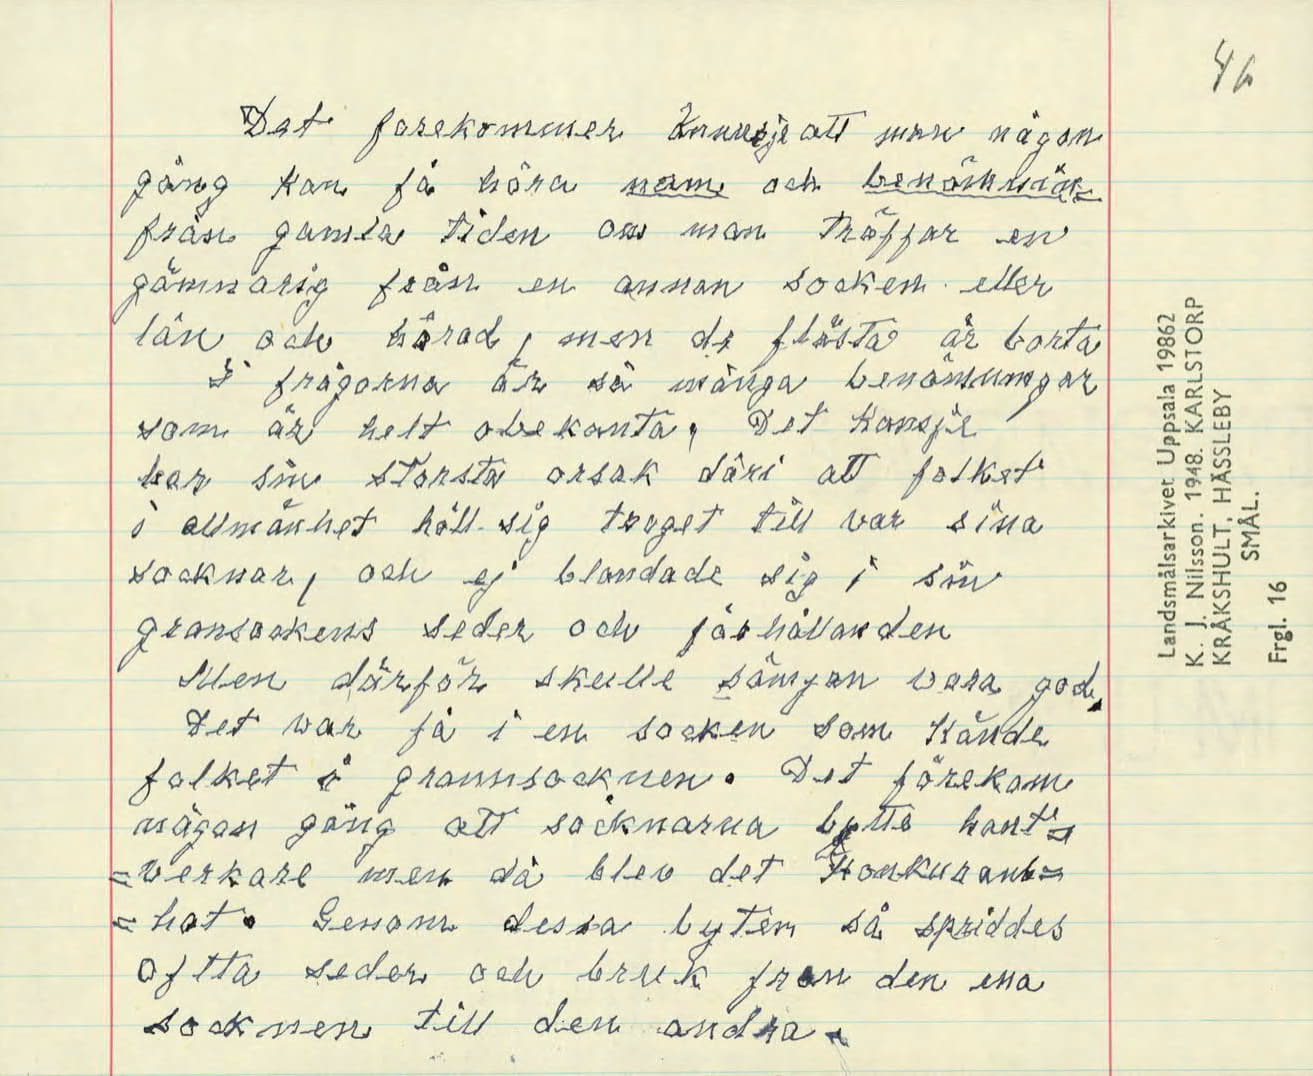 46
Det forekommer kansje att man någon
gång kan få höra namn och benämnin-
från gamla tiden om man träffar en
gämnårig från en annan socken eller
län och härad, men de flästa är borta
I frågorna är så många benämningar
som är helt obekanta, Det kansje
har sin storsta orsak däri att folket
i allmänhet höll sig troget till var sina
socknar, och ej blandade sig i sin
gransockens seder och förhållanden
Men därför skulle sämjan vara god,
Det var få i en socken som kände
folket i grannsocknen. Det förekom
någon gång att socknarna bytte hant=
=verkare men då blev det konkurans=
=hot. Genom dessa byten så spriddes
oftta seder och bruk från den ena
socknen till den andra.
Landsmålsarkivet Uppsala 19862
K. J. Nilsson. 1948. KARLSTORP
KRÅKSHULT, HÄSSLEBY
SMÅL.
Frgl. 16